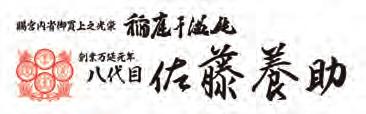 賜宮内省御買上之光栄 稲庭干饂飩
創業万延元年
八代目 佐藤養助